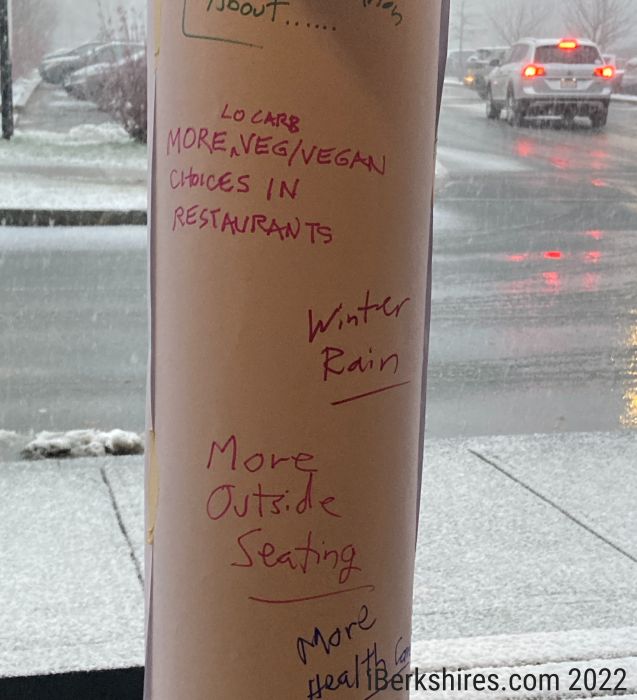 About......
LO CARB
MORE ^ VEG/VEGAN
CHOICES IN
RESTAURANTS
Winter
Rain
More
Outside
Seating
More
Health
iBerkshires.com 2022